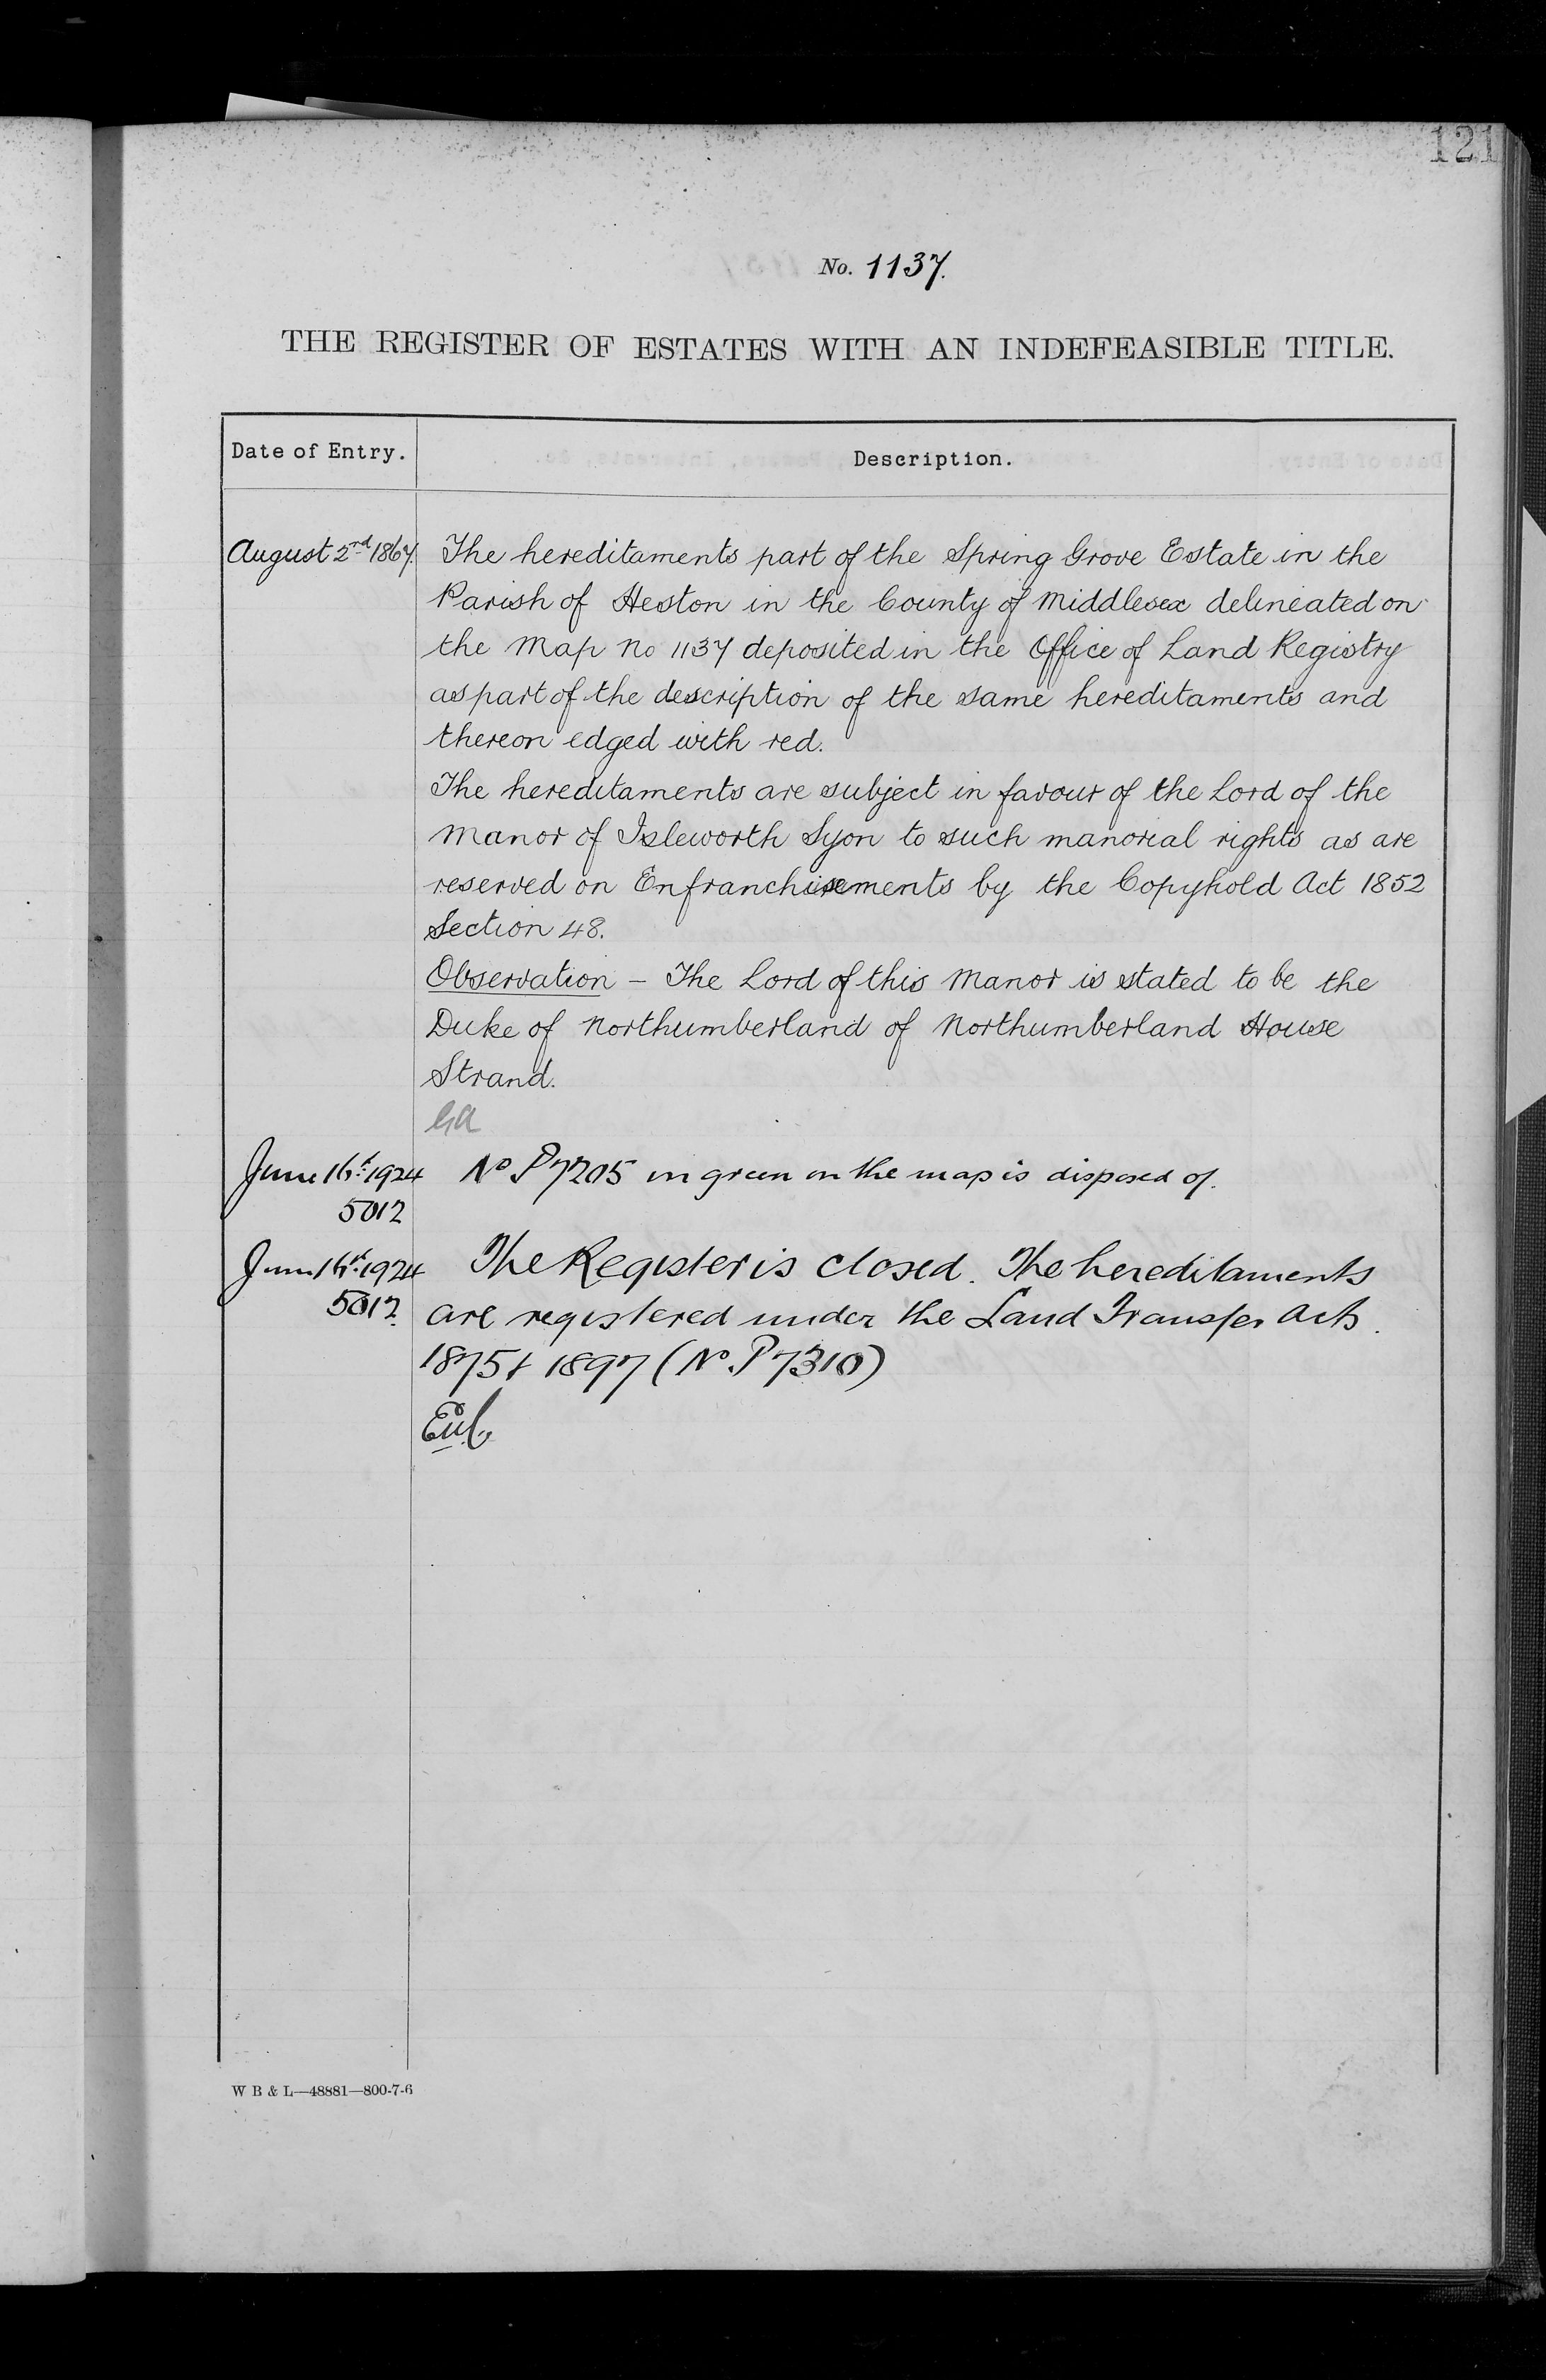 121
No. 1137.
THE REGISTER OF ESTATES WITH AN INDEFEASIBLE TITLE.
Date of Entry.
Description.
August 2nd 1867. The hereditaments part of the Spring Grove Estate in the
Parish of Heston in the County of Middlesex delineated on
the Map No 1137 deposited in the Office of Land Registry
as part of the description of the same hereditaments and
thereon edged with red.
The hereditaments are subject in favour of the Lord of the
Manor of Isleworth Syon to such manorial rights as are
reserved on Enfranchisements by the Copyhold Act 1852
Section 48.
Observation – The Lord of this Manor is stated to be the
Duke of Northumberland of Northumberland House
Strand.
GA
June 16th 1924 No P7205 in green on the map is disposed of.
5012
June 16th 1924 The Register is closed. The hereditaments
5012 are registered under the Land Transfer Acts.
1875 & 1897 (No P7310)
W B & L—48881—800-7-6